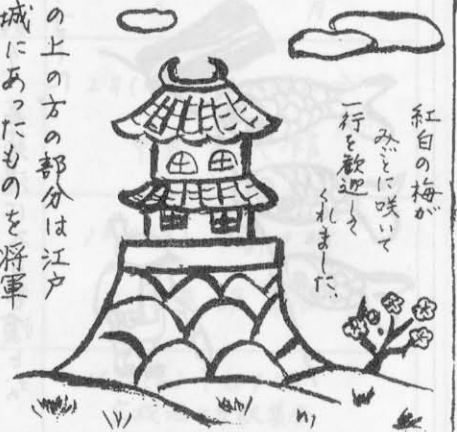 紅白の梅が
みごとに咲いて
一行を歓迎して
くれました。
の上の方の部分は江戸
城にあったものを将軍